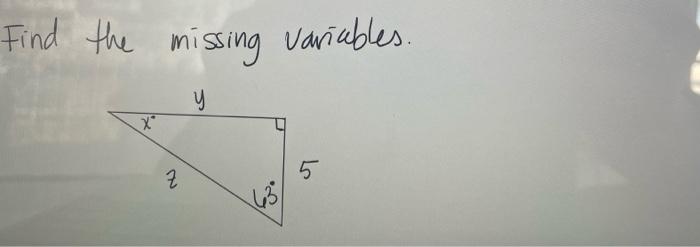 Find the missing variables.
y
x°
5
z
63°